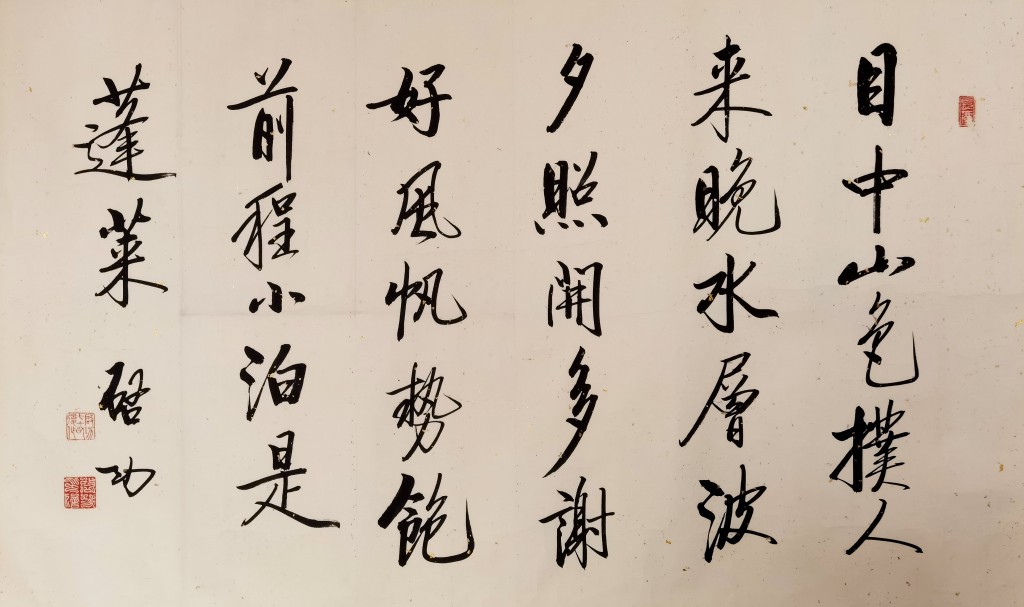 目中山色撲人
来晚水層波
夕照開多謝
好風帆勢飽
前程小泊是
蓬萊 啓功